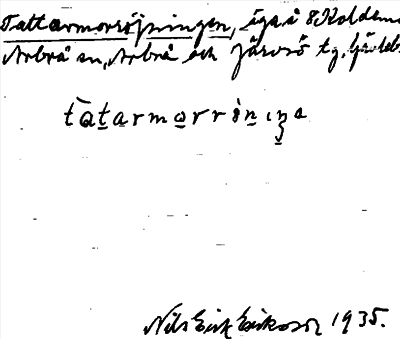 Tattarmorröjningen, äga å 8 Koldemo
Arbrå sn, Arbrå och Järvsö tg, Gävleb
tatarmorröniŋa
Nils Erik Eriksson 1935.